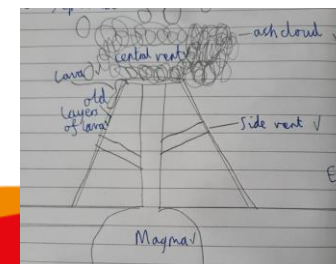 ash cloud
central vent
Lava
old
layers
of lava
Side vent
Magma
E